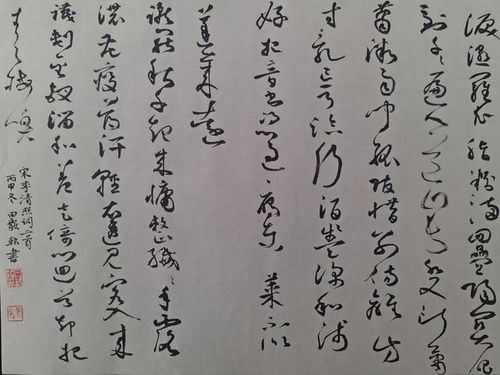 淚濕羅衣脂粉滿四疊陽關唱
到千々遍人道山長山又斷蕭
蕭微雨聞孤館惜別傷離方
寸亂忘了臨行酒盞深和淺
好把音書憑過雁東萊不似
蓬萊遠
蹴罷秋千起來慵整纖々手露
濃花瘦薄汗輕衣透見客入來
襪剗金釵溜和羞走倚門回首卻把
青梅嗅
宋李清照詞二首
丙申冬 田書